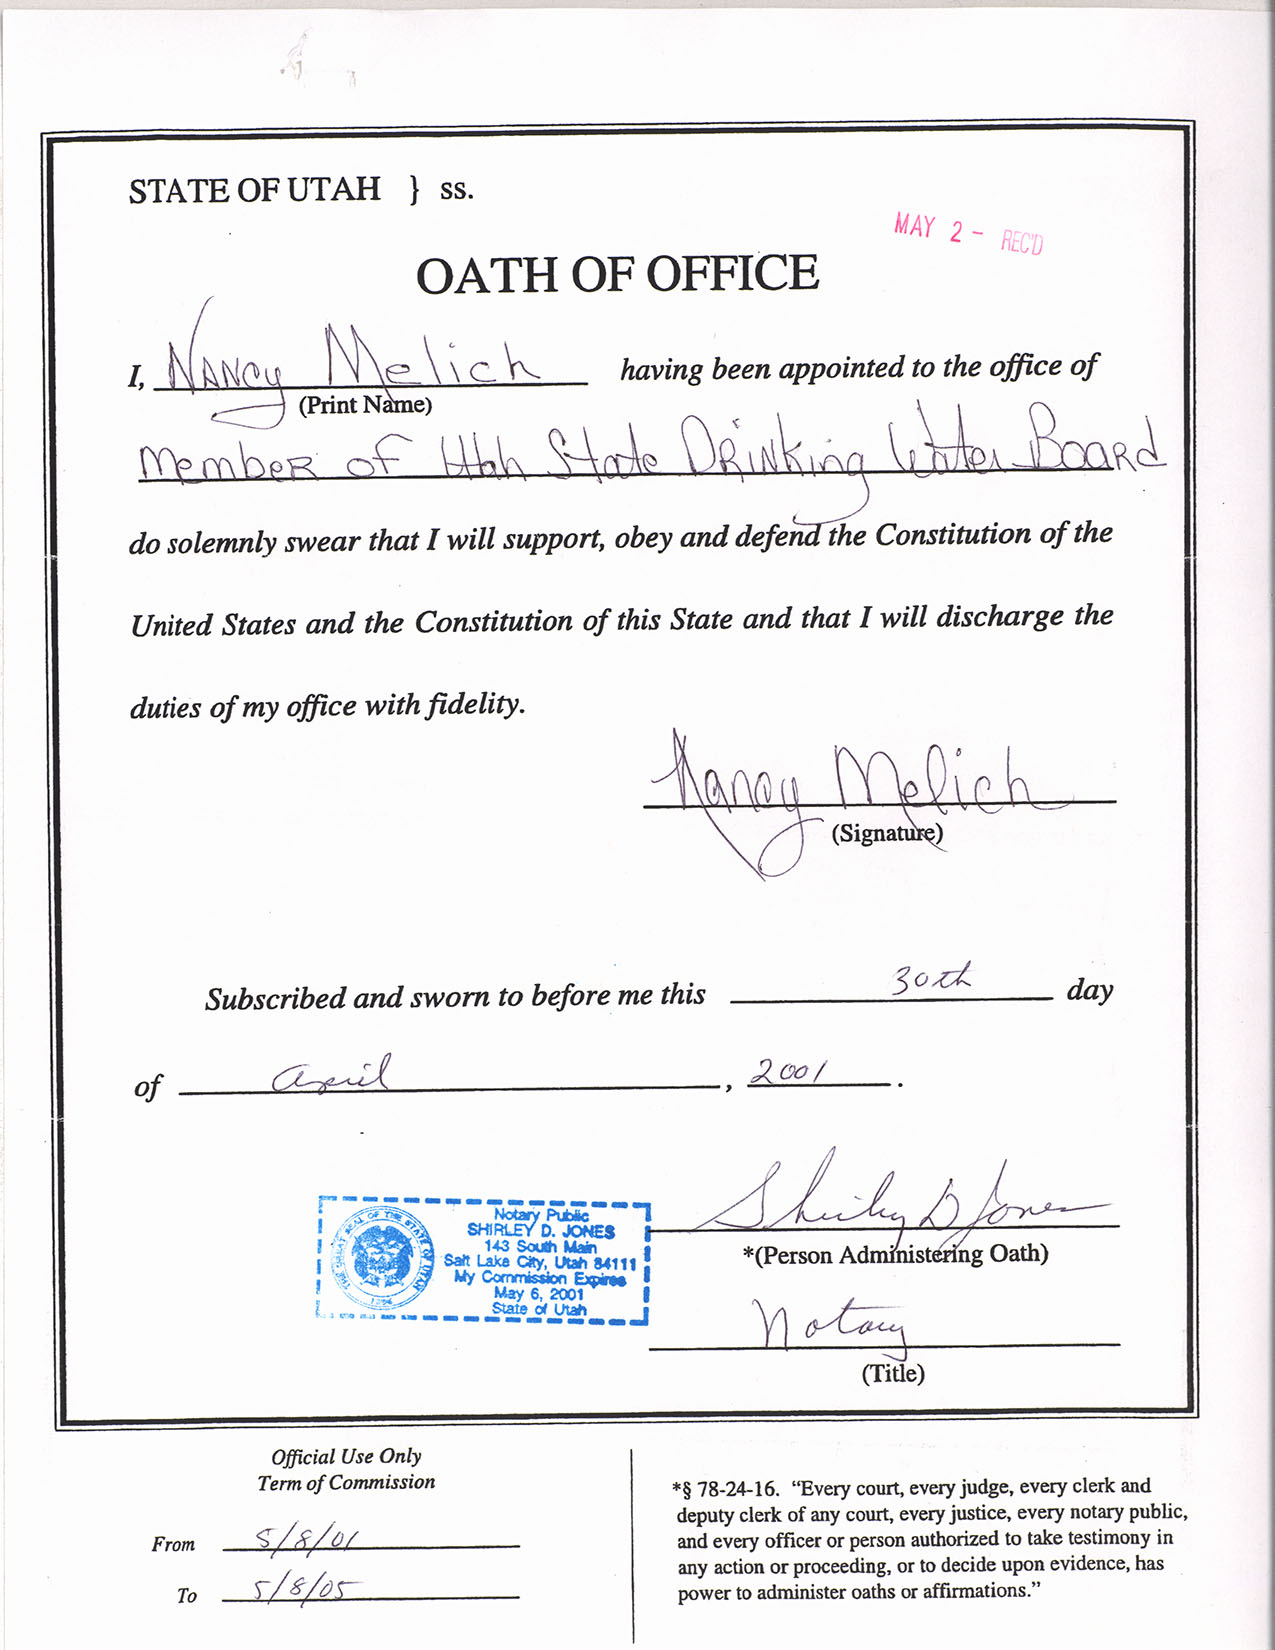 STATE OF UTAH } ss.
MAY 2 - REC'D
OATH OF OFFICE
I, Nancy Melich having been appointed to the office of
(Print Name)
Member of Utah State Drinking Water Board
do solemnly swear that I will support, obey and defend the Constitution of the
United States and the Constitution of this State and that I will discharge the
duties of my office with fidelity.
Nancy Melich
(Signature)
Subscribed and sworn to before me this 30th day
of April, 2001.
Shirley D Jones
*(Person Administering Oath)
Notary Public
SHIRLEY D. JONES
143 South Main
Salt Lake City, Utah 84111
My Commission Expires
May 6, 2001
State of Utah
THE GREAT SEAL OF THE STATE OF UTAH
1896
Notary
(Title)
Official Use Only
Term of Commission
From 5/8/01
To 5/8/05
*§ 78-24-16. “Every court, every judge, every clerk and
deputy clerk of any court, every justice, every notary public,
and every officer or person authorized to take testimony in
any action or proceeding, or to decide upon evidence, has
power to administer oaths or affirmations.”